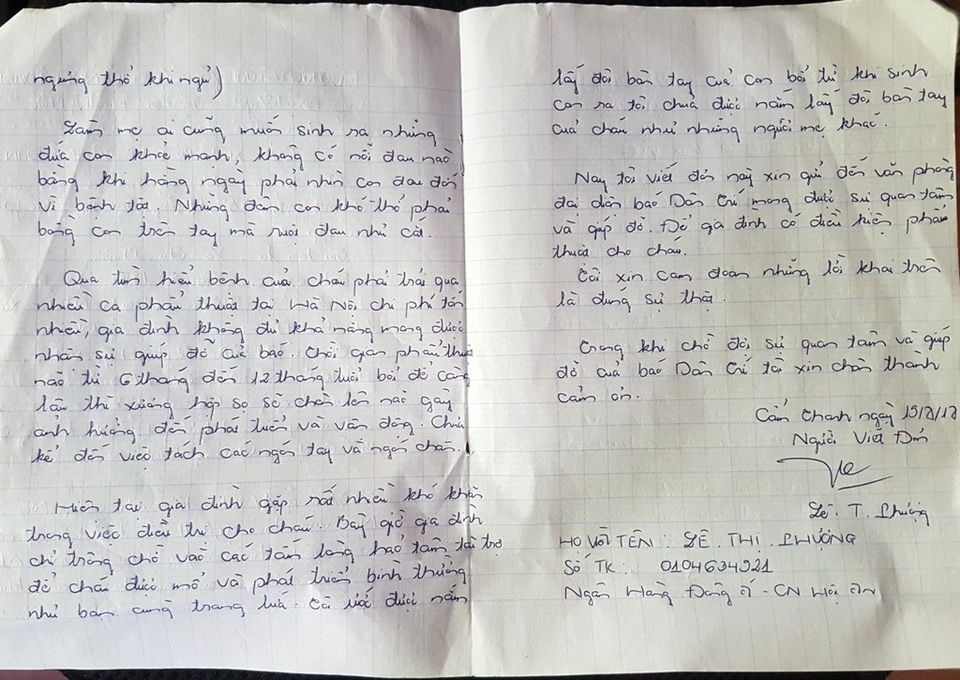 ngưng thở khi ngủ)
Làm mẹ ai cũng muốn sinh ra những
đứa con khoẻ mạnh, không có nỗi đau nào
bằng khi hằng ngày phải nhìn con đau đớn
vì bệnh tật. Nhưng đến con khó thở phải
bồng con trên tay mà ruột đau như cắt.
Qua tìm hiểu bệnh của cháu phải trải qua
nhiều ca phẩu thuật tại Hà Nội chi phí tốn
nhiều, gia đình không đủ khả năng mong được
nhận sự giúp đỡ của báo. Thời gian phẩu thuật
não từ 6 tháng đến 12 tháng tuổi bởi để càng
lâu thì xương hộp sọ sẽ chèn lên não gây
ảnh hưởng đến phát triển và vận động. Chưa
kể đến việc tách các ngón tay và ngón chân.
Hiện tại gia đình gặp rất nhiều khó khăn
trong việc điều trị cho cháu. Bây giờ gia đình
chỉ trông chờ vào các tấm lòng hảo tâm tài trợ
để cháu được mổ và phát triển bình thường
như bạn cùng trang lứa. Tôi ước được nắm
lấy đôi bàn tay của con bởi từ khi sinh
con ra tôi chưa được nắm lấy đôi bàn tay
của cháu như những người mẹ khác.
Nay tôi viết đơn này xin gửi đến văn phòng
đại diện báo Dân Trí mong được sự quan tâm
và giúp đỡ. Để gia đình có điều kiện phẩu
thuật cho cháu.
Tôi xin cam đoan những lời khai trên
là đúng sự thật.
Trong khi chờ đợi sự quan tâm và giúp
đỡ của báo Dân Trí tôi xin chân thành
cảm ơn.
Cẩm Thanh ngày 15/7/17
Người Viết Đơn
Lê. T. Phượng
HỌ VÀ TÊN: LÊ. THỊ. PHƯỢNG
Số TK: 0104634921
Ngân Hàng Đông Á - CN Hội An